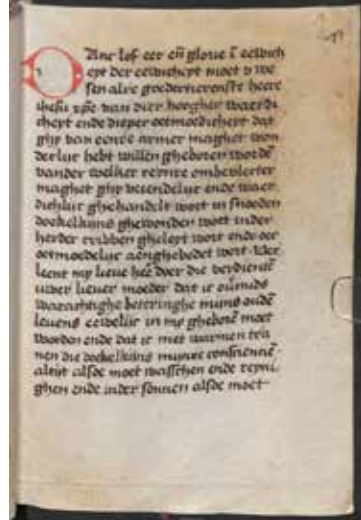 Danc lof eer en̄ glorie ī eewich
eyt der eewicheyt moet v we
sen alre goedertierenste heere
ihesu xp̄e van dier hoegher waerdi
cheyt ende dieper oetmoedicheyt dat
ghy van eenre armer maghet won
derlijc hebt willen gheboren wordē
vander welker reynre onbevlecter
maghet ghy
maghet ghy eerwerdelijc ende waer
dichlijc ghehandelt wort in snoeden
doekelkijns ghewonden wort inder
herder cribben gheleyt wort ende oet
oetmoedelijc aenghebedet wort Ver
leent my lieue heē doer die verdientē
uwer liever moeder dat ic ouīmids
warachtighe beteringhe mijns oudē
levens eewelijc in my gheborē moet
worden ende dat ic met warmen tra
nen die doekelkijns mijnre conscienciē
altijt alsoe moet wasschen ende reyni
ghen ende inder sonnen alsoe moet